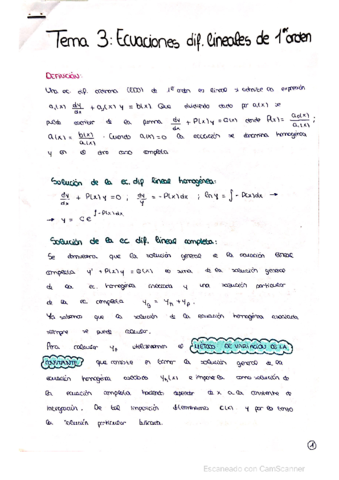 Tema 3: Ecuaciones dif. lineales de 1er orden
DEFINICIÓN:
Una ec dif ordinaria (EDO) de 1er orden es lineal si admite la expresión
a₁(x) dy/dx + a₀(x) y = b(x) Que dividiendo cada por a₁(x) se
puede escribir de la forma dy/dx + P(x) y = Q(x) donde P(x) = a₀(x)/a₁(x),
Q(x) = b(x)/a₁(x) · Cuando Q(x) = 0 la ecuación se denomina homogénea
y en el otro caso completa
Solución de la ec. dif. lineal homogénea:
dy/dx + P(x) y = 0 ; dy/y = -P(x) dx ; ln y = ∫ -P(x) dx →
→ y = C e^∫-P(x) dx
Solución de la ec dif. lineal completa:
Se demuestra que la solución general de la ecuación lineal
completa y' + P(x) y = Q(x) es suma de la solución general
de la ec. homogénea asociada y una solución particular
de la ec completa y_g = y_h + y_p.
Ya sabemos que la solución de la ecuación homogénea asociada
siempre se puede calcular.
Para calcular y_p utilizaremos el MÉTODO DE VARIACIÓN DE LA
CONSTANTE que consiste en tomar la solución general de la
ecuación homogénea asociada y_h(x) e imponerla como solución de
la ecuación completa haciendo depender de x a la constante de
integración. De tal imposición obtenemos C(x) y por lo tanto
la solución particular buscada.
1
Escaneado con CamScanner